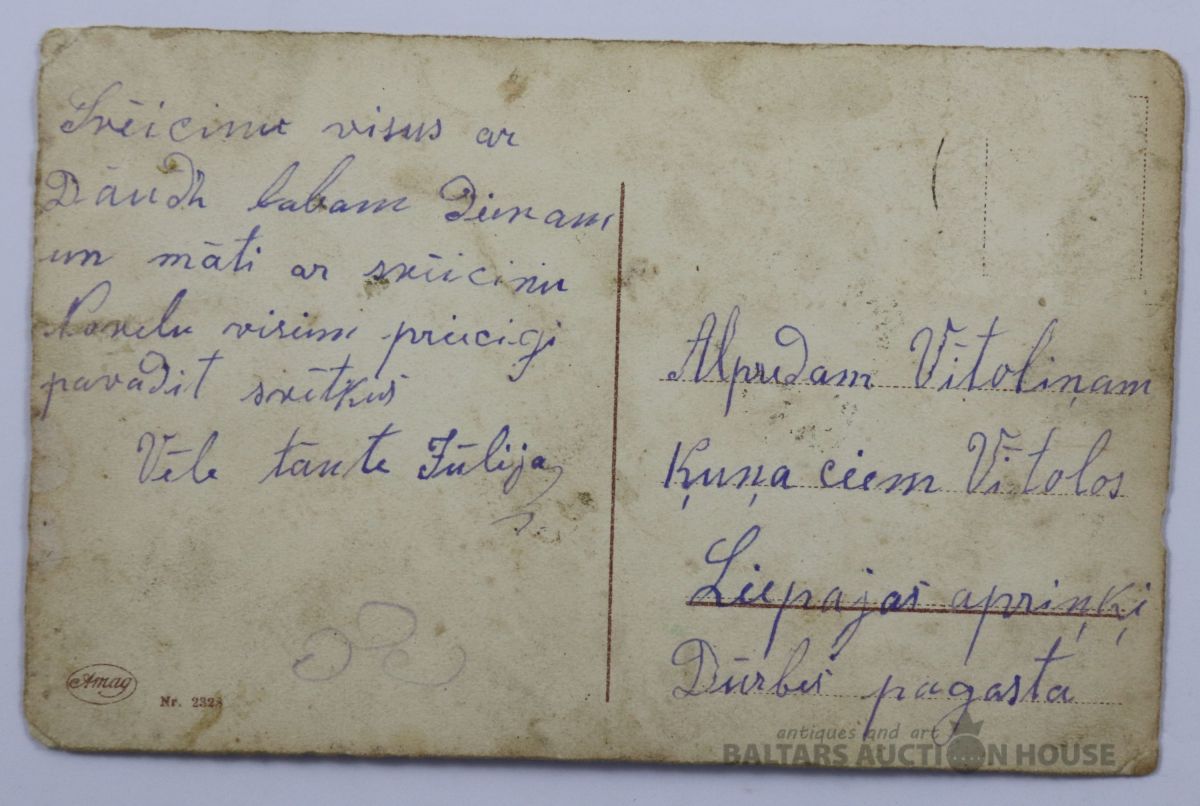 Svēicinu visus ar
Dāudh labam Dienam
un māti ar svēicinu
Novelu visim priecigi
pavadit svētkus
Vēle tante Jūlija
Alpredam Vītoliņam
Ķuņa ciem Vītolos
Liepajas apriņķi
Dūrbes pagasta
Amag
Nr. 2328
antiques and art
BALTARS AUCTION HOUSE